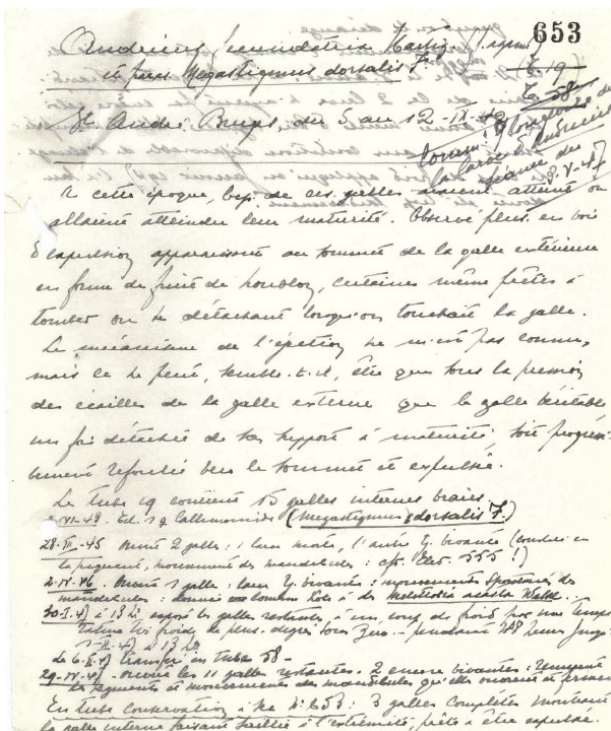 653
Andricus fecundatrix Hartig.
et paras Megastigmus dorsalis F.
T. 19
T. 58
St André, Bruges, du 5 au 12-IX-43
A cette époque, bcp. de ces galles avaient atteint ou
allaient atteindre leur maturité. Observé plus. en voie
d'expulsion apparaissant au sommet de la galle extérieure
en forme de fruit de houblon, certaines même prêtes à
tomber ou se détachant lorsqu'on touchait la galle.
Le mécanisme de l'éjection ne m'est pas connu,
mais ce ne peut, semble-t-il, être que sous la pression
des écailles de la galle externe que la galle véritable
une fois détachée de son support à maturité, soit progressi-
vement refoulée vers le sommet et expulsée.
Le tube 19 contient 15 galles internes vraies
Ecl. 1 ♀ Callimomide (Megastigmus dorsalis F.)
28-III-45 Ouvert 2 galles: 1 larve morte, l'autre vivante
la pigment, mouvement des mandibules: cfr. Elev. 555!)
2-IV-46. Ouvert 1 galle: larve vivante: mouvements spontanés des
mandibules: donnée
à 13 h exposé les galles restantes à un coup de froid par une tempé-
rature très froide de plus. degrés sous zéro - pendant 248 heures jusqu'
Le 6-I-47 transféré en tube 58 -
29-IV-47 - ouvert les 11 galles restantes. 2 encore vivantes: remuent
les segments et mouvements des mandibules qu'elles ouvrent et ferment
En tube conservation à sec N° 653: 3 galles complètes montrant
la galle interne faisant saillie à l'extrémité, prête à être expulsée.